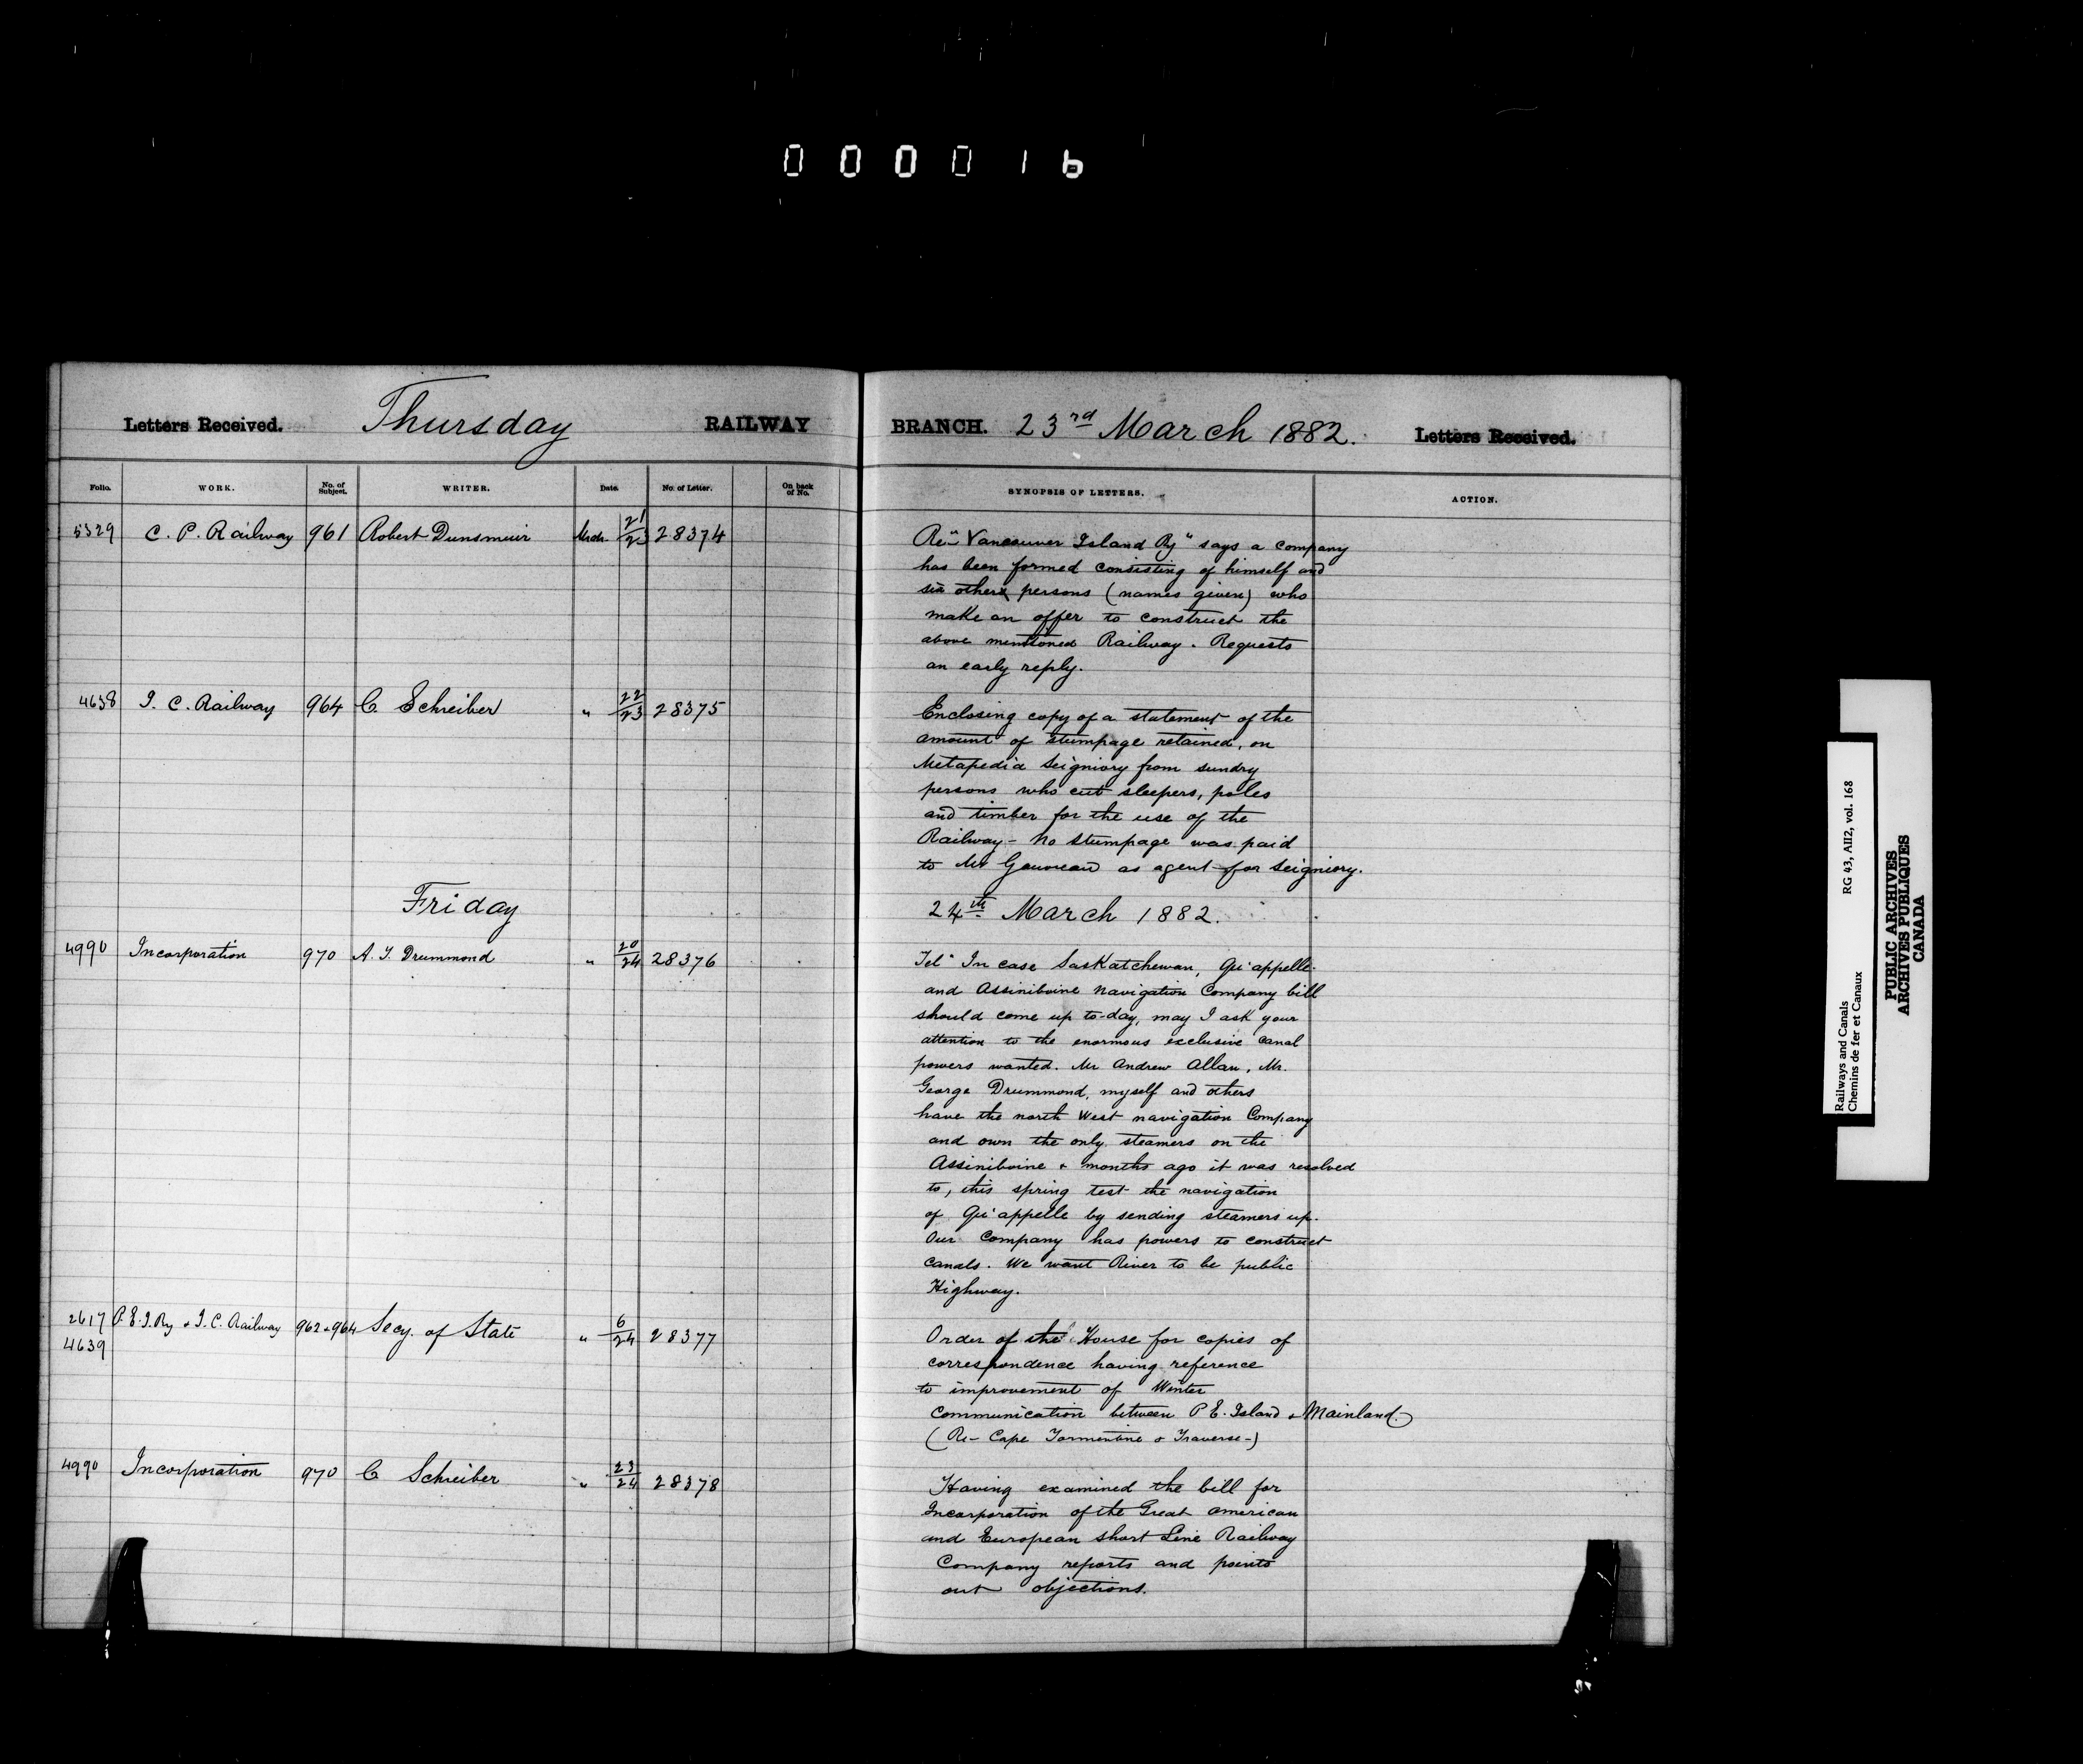 0 0 0 0 1 6
Letters Received. Thursday RAILWAY BRANCH. 23rd March 1882. Letters Received.
Folio. WORK. No. of Subject. WRITER. Date. No. of Letter. On back of No. SYNOPSIS OF LETTERS. ACTION.
5329 C. P. Railway 961 Robert Dunsmuir Mch 21/23 28374
Re "Vancouver Island Ry" says a company
has been formed consisting of himself and
six other persons (names given) who
make an offer to construct the
above mentioned Railway. Requests
an early reply.
4638 I. C. Railway 964 C Schreiber " 22/23 28375
Enclosing copy of a statement of the
amount of stumpage retained, on
Metapedia Seigniory from sundry
persons who cut sleepers, poles
and timber for the use of the
Railway - No stumpage was paid
to Mr Gauvreau as agent for Seigniory.
Friday 24th March 1882.
4990 Incorporation 970 A. T. Drummond " 20/24 28376
Tel" In case Saskatchewan, Qu'appelle
and Assiniboine Navigation Company bill
should come up to-day, may I ask your
attention to the enormous exclusive canal
powers wanted. Mr Andrew Allan, Mr.
George Drummond, myself and others
have the north West navigation Company
and own the only steamers on the
Assiniboine & months ago it was resolved
to, this spring test the navigation
of Qu'appelle by sending steamers up.
Our Company has powers to construct
canals. We want River to be public
Highway.
2617 P. E. I. Ry & I. C. Railway 962 & 964 Secy. of State " 6/24 28377
4639
Order of the House for copies of
correspondence having reference
to improvement of Winter
communication between P E. Island & Mainland.
(Re- Cape Tormentine & Traverse-)
4990 Incorporation 970 C Schreiber " 23/24 28378
Having examined the bill for
Incorporation of the Great American
and European Short Line Railway
Company reports and points
out objections.
Railways and Canals RG 43, AII2, vol. 168
Chemins de fer et Canaux
PUBLIC ARCHIVES
ARCHIVES PUBLIQUES
CANADA